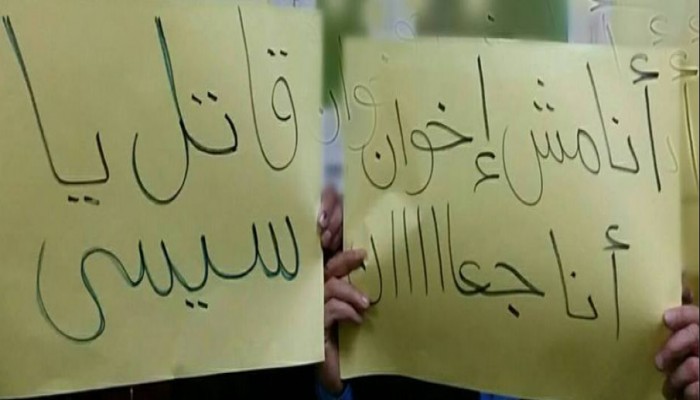 أنا مش إخوان
أنا جعاااااان
قاتل يا
سيسى